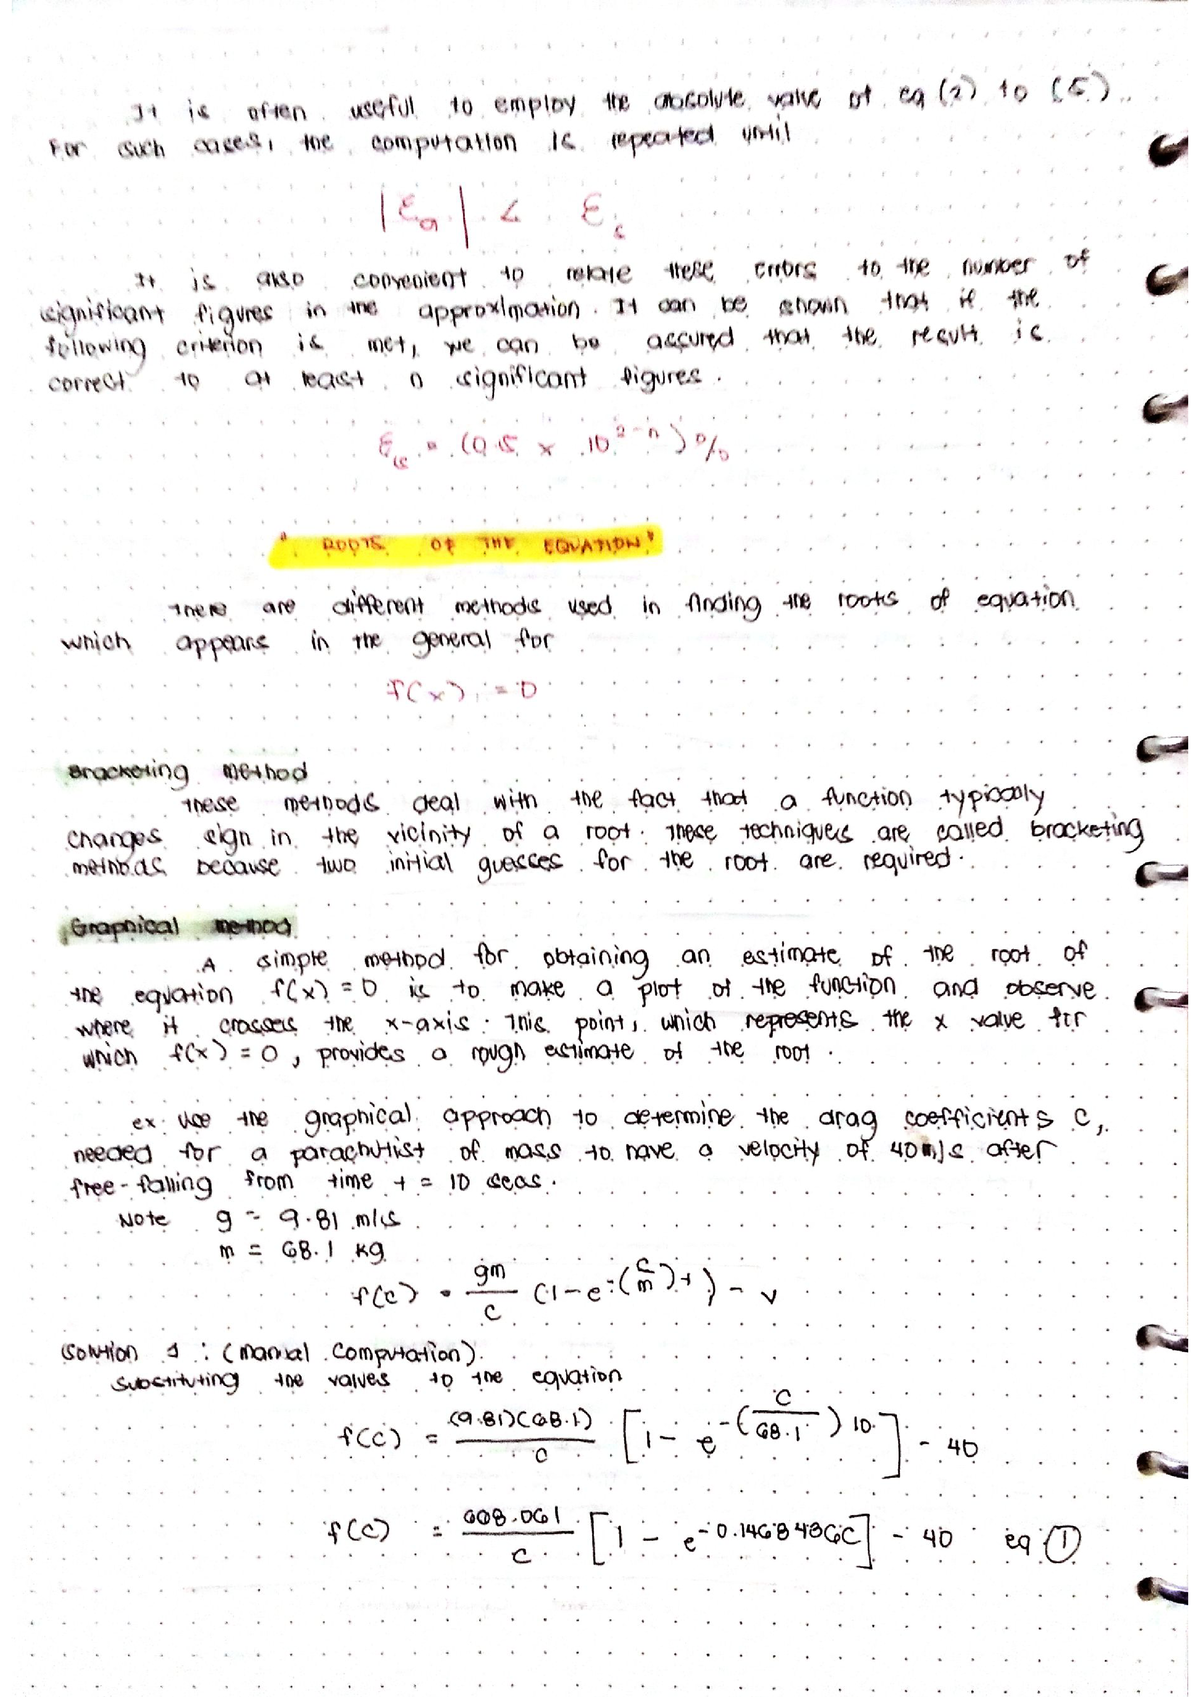 It is often useful to employ the absolute value of eq (2) to (5).
For such cases, the computation is repeated until
|εa| < εs
It is also convenient to relate these errors to the number of
significant figures in the approximation. It can be shown that if the
following criterion is met, we can be assured that the result is
correct to at least n significant figures.
εs = (0.5 x 10^2-n) %
"ROOTS OF THE EQUATION"
There are different methods used in finding the roots of equation
which appears in the general for
f(x) = 0
Bracketing method
These methods deal with the fact that a function typically
changes sign in the vicinity of a root. These techniques are called bracketing
methods because two initial guesses for the root are required.
Graphical method
A simple method for obtaining an estimate of the root of
the equation f(x) = 0 is to make a plot of the function and observe
where it crosses the x-axis. This point, which represents the x value for
which f(x) = 0, provides a rough estimate of the root.
ex: Use the graphical approach to determine the drag coefficients c,
needed for a parachutist of mass to have a velocity of 40 m/s after
free-falling from time t = 10 secs.
Note g = 9.81 m/s
m = 68.1 kg
f(c) = gm/c (1-e^-(c/m)t) - v
Solution 1 : (manual computation).
Substituting the values to the equation
f(c) = (9.81)(68.1)/c [1 - e^-(c/68.1)10] - 40
f(c) = 668.061/c [1 - e^-0.146843Gc] - 40 eq ①